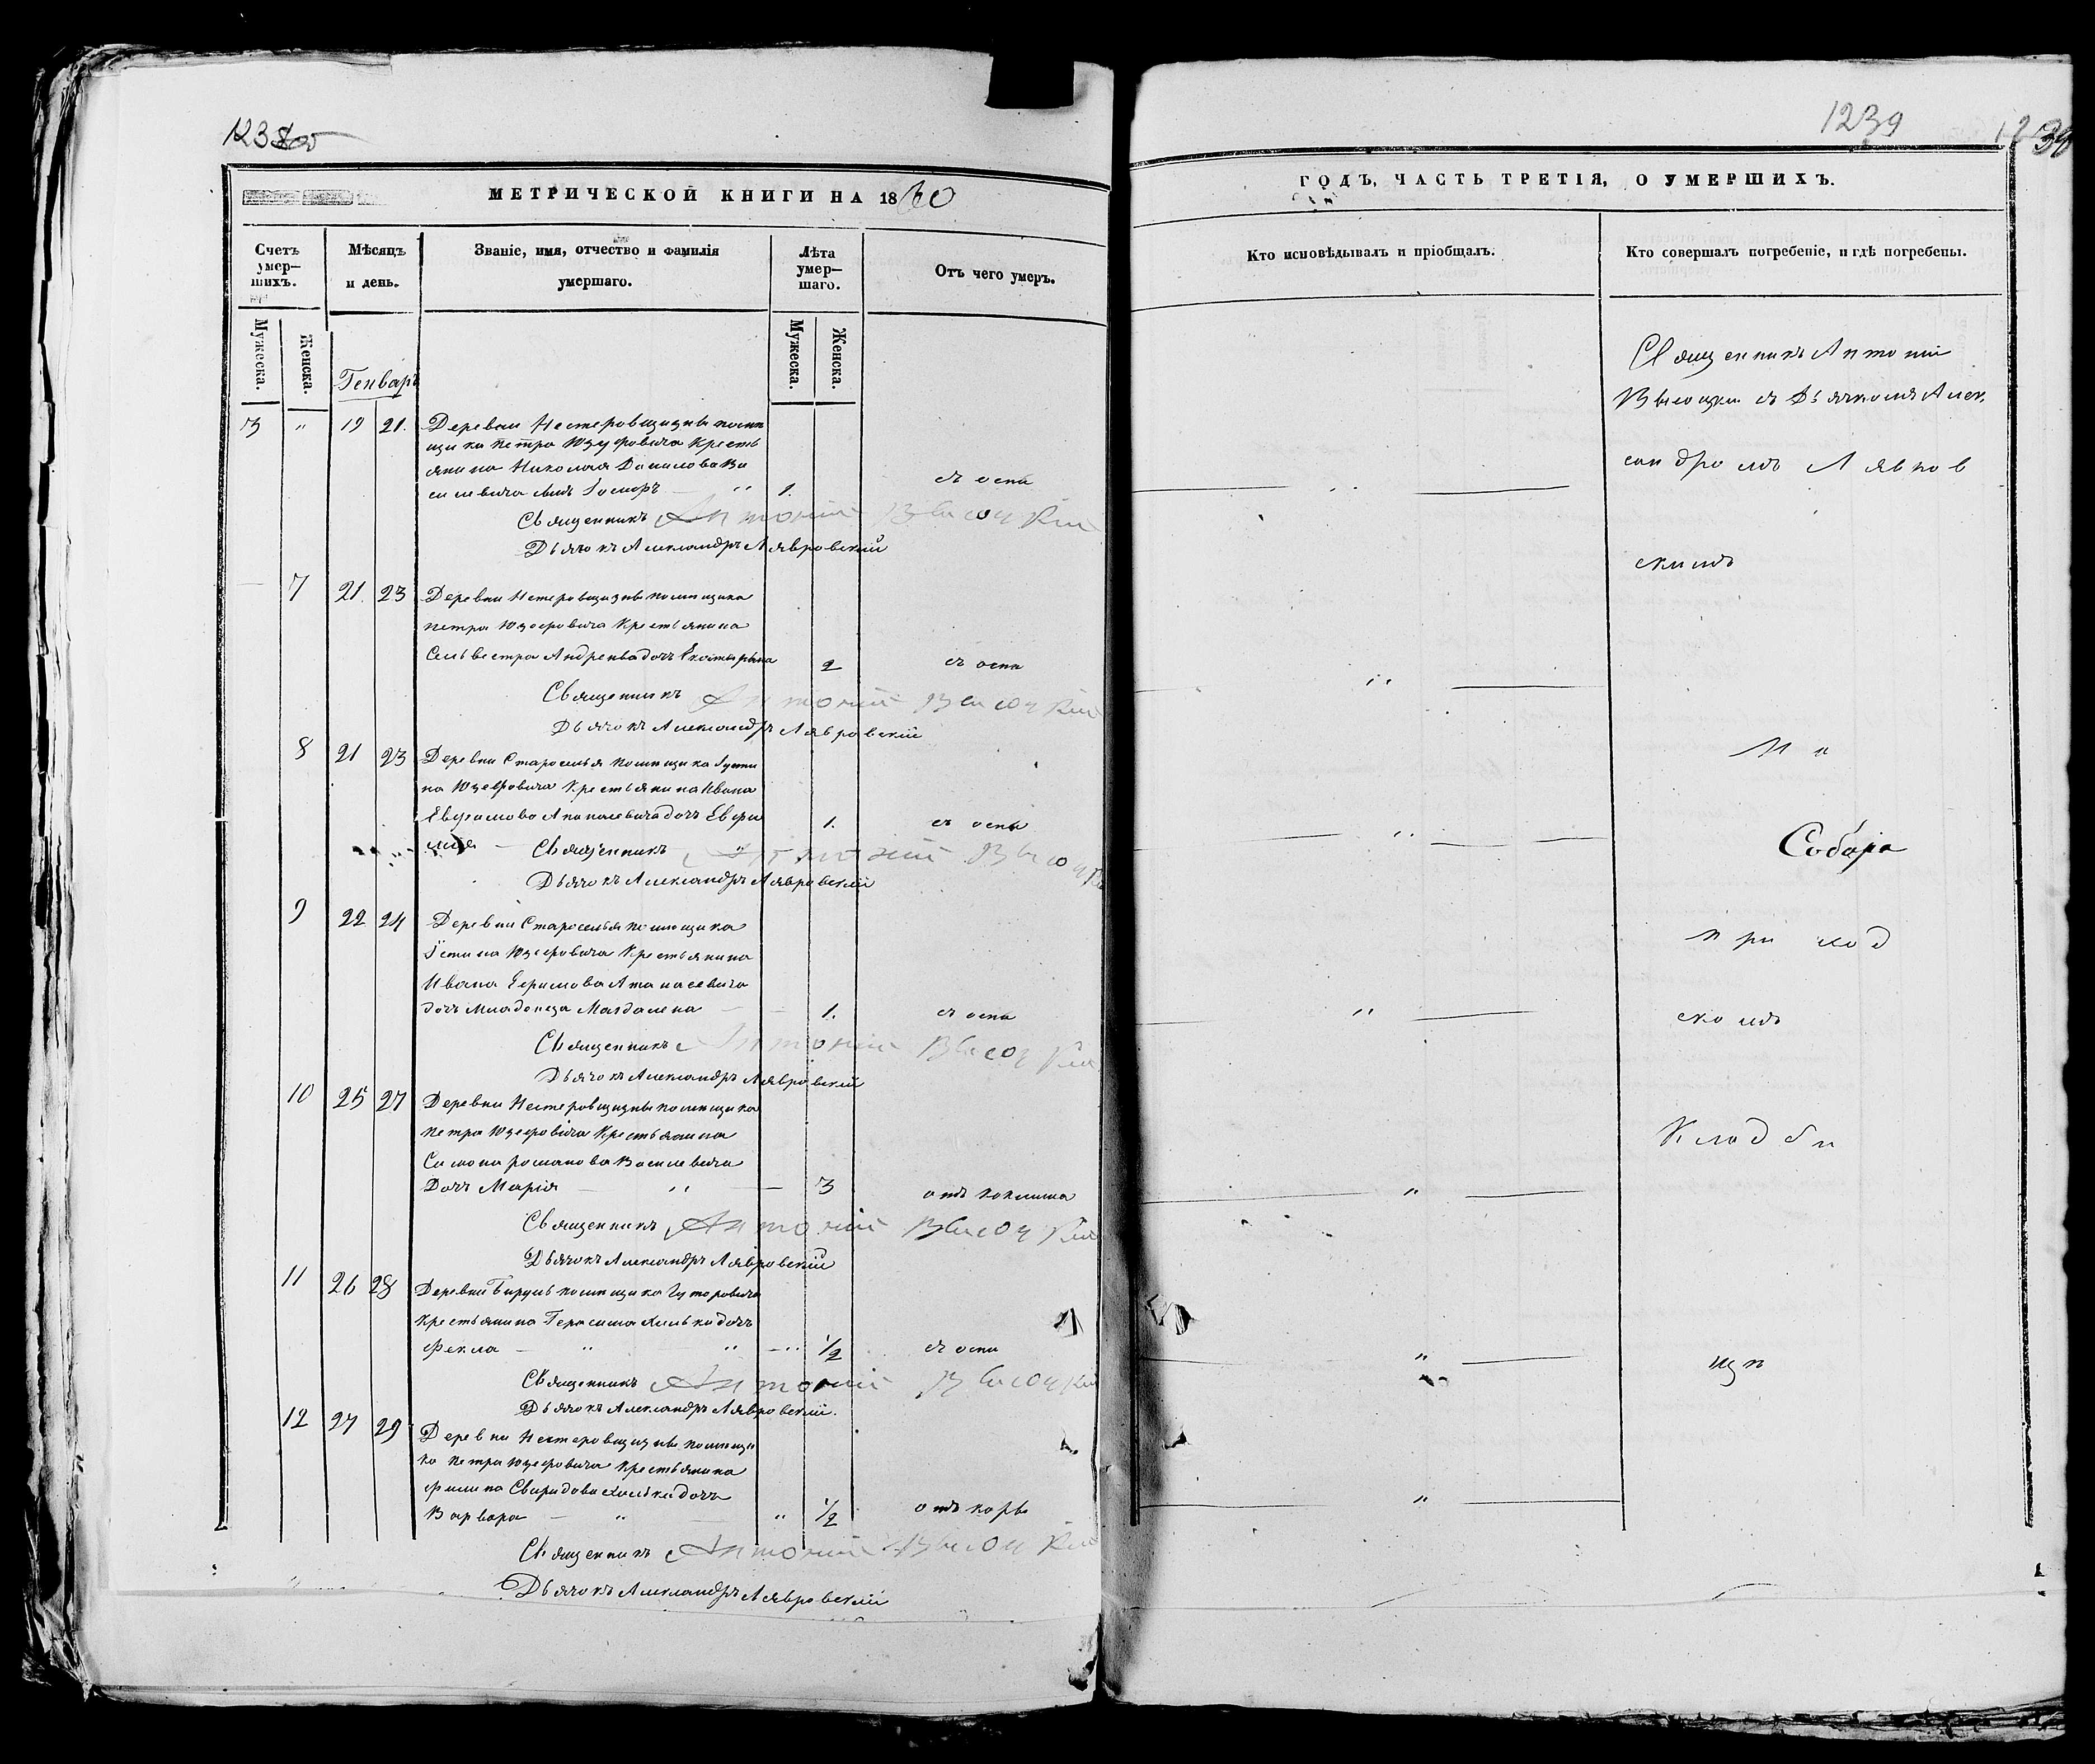 1238
МЕТРИЧЕСКОЙ КНИГИ НА 1860
Счетъ умер-шихъ.
Мужеска.
Женска.
Мѣсяцъ и день.
Званіе, имя, отчество и фамилія умершаго.
Лѣта умер-шаго.
Мужеска.
Женска.
Отъ чего умеръ.
Генваръ
3 " 19 21. Деревни Нестеровщизны помѣ
щика Петра Юзефовича Кресть
янина Николая Данилова Ва
силевича сынъ " 1. съ оспы
Священникъ Антоній Высоцкій
Дьячокъ Александръ Лявровскій
7 21. 23 Деревни Нестеровщизны помѣщика
Петра Юзефовича Крестьянина
Сельвестра Андреева дочь Екатерына 2 съ оспы
Священникъ Антоній Высоцкій
Дьячокъ Александръ Лявровскій
8 21 23 Деревни Староселья помѣщика Густи
на Юзефовича Крестьянина Ивана
дочь Евфи 1. съ оспы
мія Священникъ Антоній Высоцкій
Дьячокъ Александръ Лявровскій
9 22 24 Деревни Староселья помѣщика
Юзефовича Крестьянина
Ивана Атанасевича
дочь младенца Магдалена 1. съ оспы
Священникъ Антоній Высоцкій
Дьячокъ Александръ Лявровскій
10 25 27 Деревни Нестеровщизны помѣщика
Петра Юзефовича Крестьянина
Симона романова Василевича
Дочь Марія " 3 отъ коклюша
Священникъ Антоній Высоцкій
Дьячокъ Александръ Лявровскій
11 26 28 Деревни помѣщика
Крестьянина Герасима дочь
Фекла " " " 1/2 съ оспы
Священникъ Антоній Высоцкій
Дьячокъ Александръ Лявровскій.
12 27 29 Деревни Нестеровщизны помѣщи
ка Петра Юзефовича Крестьянина
Филипа Свиридова дочь
Варвара " " 1/2 отъ коры
Священникъ Антоній Высоцкій
Дьячокъ Александръ Лявровскій
1239
ГОДЪ, ЧАСТЬ ТРЕТІЯ, О УМЕРШИХЪ.
Кто исповѣдывалъ и пріобщалъ.
Кто совершалъ погребеніе, и гдѣ погребены.
Священникъ Антоній
Высоцкій съ Дьячкомъ Алек.
сандромъ Лявров
скимъ
На
Собора
приход
скомъ
Кладби
щѣ